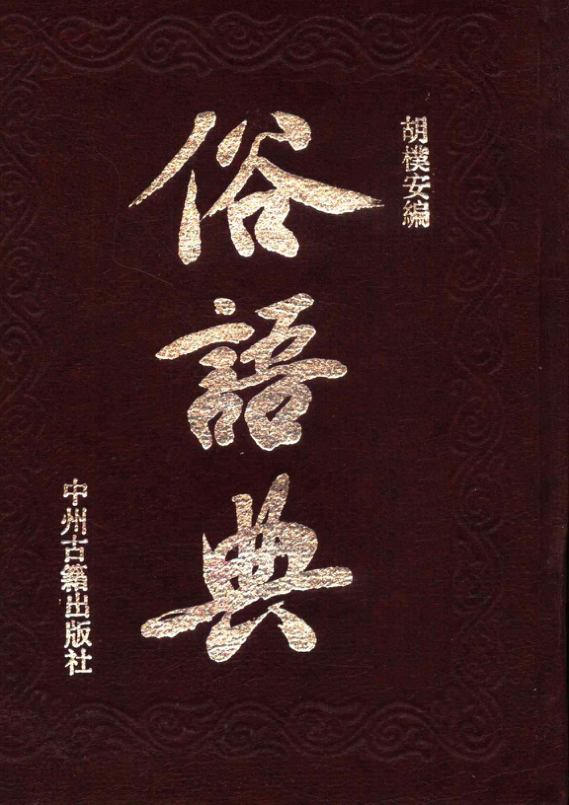 胡樸安編
俗語典
中州古籍出版社